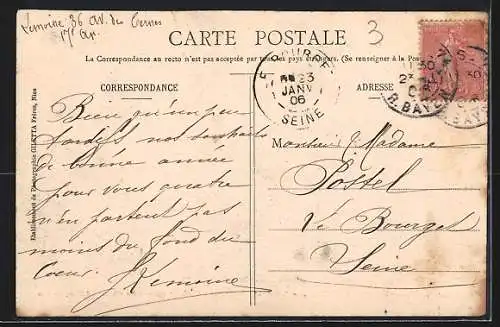 Lemoine 36 av. des Ternes
17e Ar.
3
CARTE POSTALE
La Correspondance au recto n'est pas acceptée par tous les pays étrangers. (Se renseigner à la Poste)
CORRESPONDANCE
ADRESSE
23
JANV
06
SEINE
R. BAYEN
Etablissement de Photographie GILETTA Frères, Nice
Bien qu'un peu
tardifs nos souhaits
de bonne année
pour vous quatre
n'en partent pas
moins du fond du
Coeur. J Lemoine
Monsieur & Madame
Postel
Le Bourget
Seine